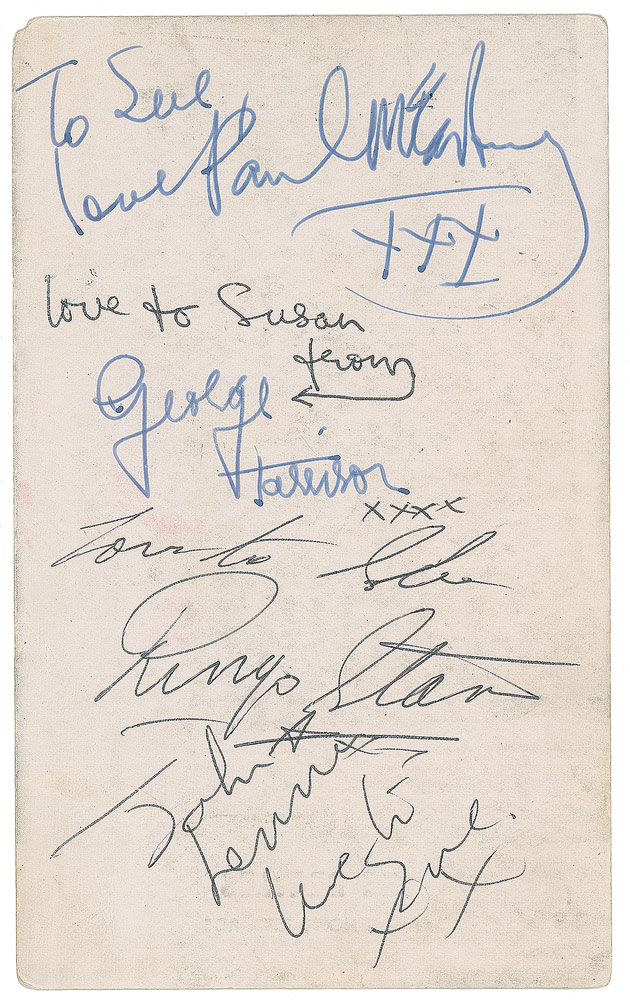 To Sue
love Paul McCartney
XXX
love to Susan
from
George
Harrison
xxxx
Love to Sue
Ringo Starr
John
Lennon
love to
Sue.
x x